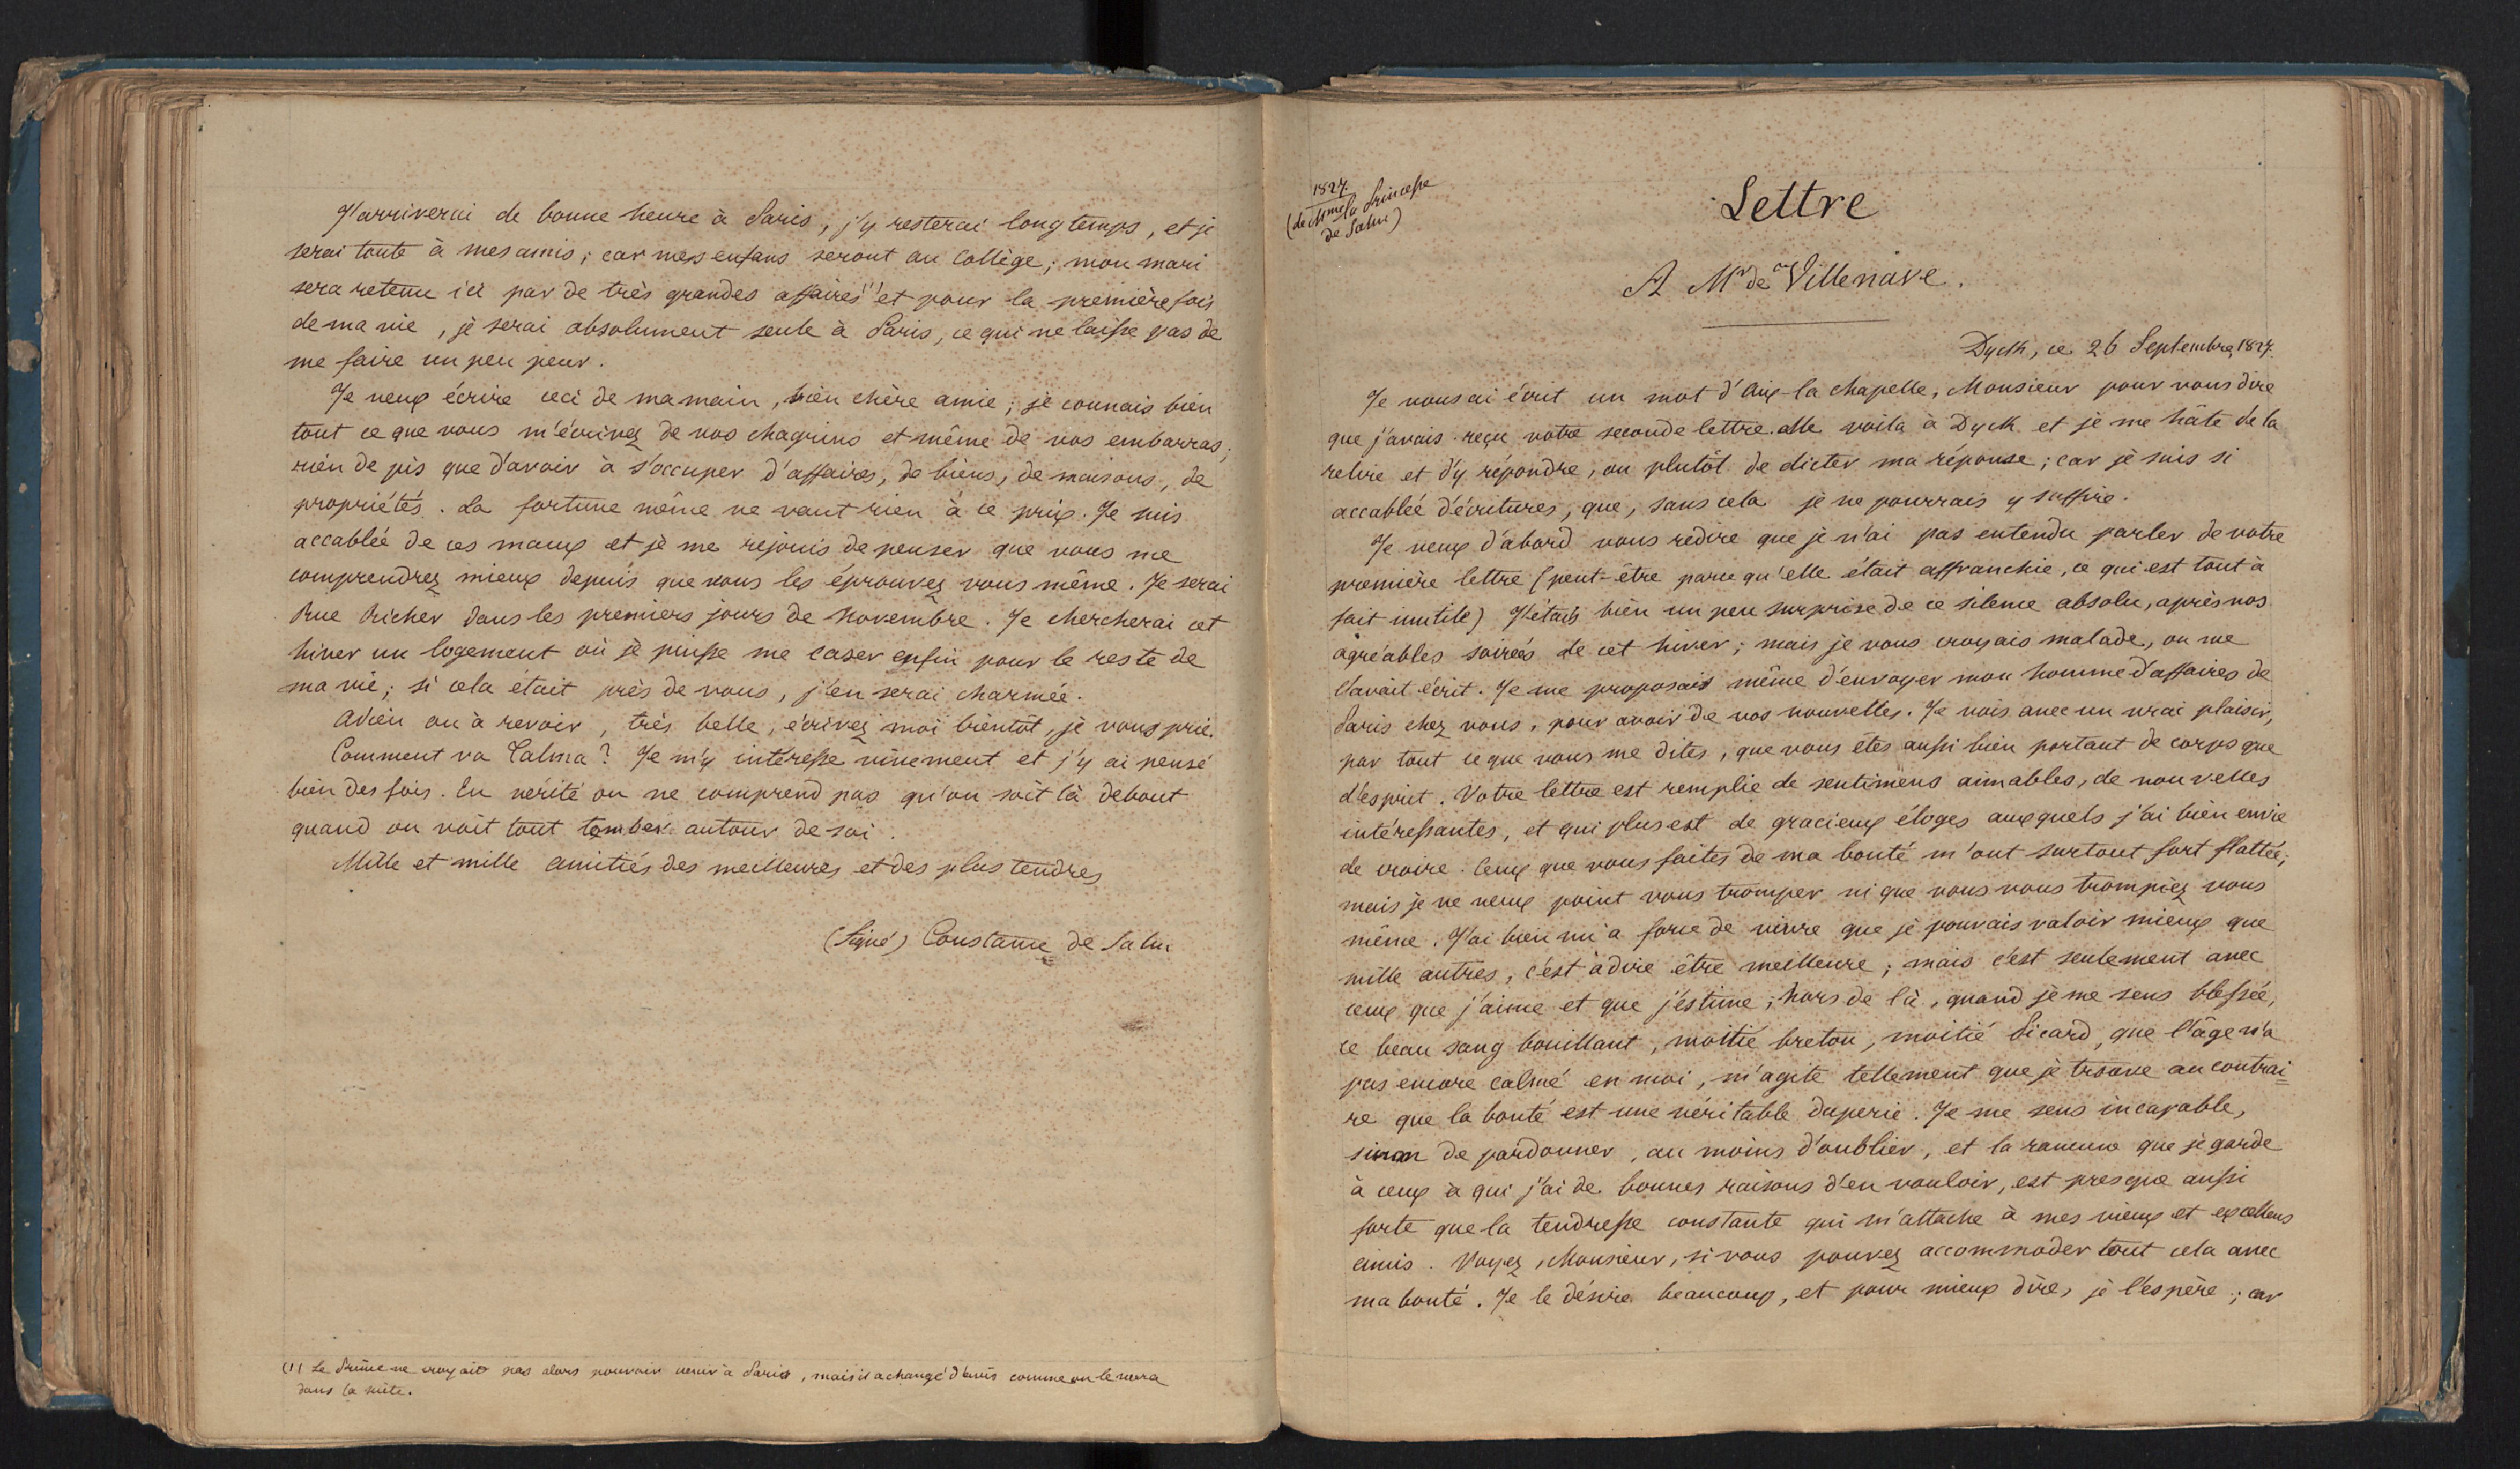 J'arriverai de bonne heure à Paris, j'y resterai longtemps, et je
serai toute à mes amis; car mes enfans seront au Collège; mon mari
sera retenu ici par de très grandes affaires (1) et pour la première fois
de ma vie, je serai absolument seule à Paris, ce qui ne laisse pas de
me faire un peu peur.
Je veux écrire ceci de ma main, bien chère amie; je connais bien
tout ce que vous m'écrivez de vos chagrins et même de vos embarras;
rien de pis que d'avoir à s'occuper d'affaires, de biens, de maisons, de
propriétés. La fortune même ne vaut rien à ce prix. Je suis
accablée de ces maux et je me rejouis de penser que vous me
comprendrez mieux depuis que vous les éprouvez vous même. Je serai
Rue Richer dans les premiers jours de Novembre. Je chercherai cet
hiver un logement où je puisse me caser enfin pour le reste de
ma vie; si cela était près de vous, j'en serai charmée.
Adieu ou à revoir, très belle, écrivez moi bientôt, je vous prie.
Comment va Talma? Je m'y intéresse vivement et j'y ai pensé
bien des fois. En vérité on ne comprend pas qu'on soit là debout
quand on voit tout tomber autour de soi.
Mille et mille amitiés des meilleures et des plus tendres
(Signé) Constance de Salm
(1) Le Prince ne croyait pas alors pouvoir venir à Paris, mais il a changé d'avis comme on le verra
dans la suite.
1827.
(de Mme la Princesse
de Salm)
Lettre
A Mr de Villenave.
Dyck, ce 26 Septembre 1827.
Je vous ai écrit un mot d'Aix-la chapelle, Monsieur pour vous dire
que j'avais reçu votre seconde lettre. Me voila à Dyck et je me hâte de la
relire et d'y répondre, ou plutôt de dicter ma réponse; car je suis si
accablée d'écritures, que, sans cela je ne pourrais y suffire.
Je veux d'abord vous redire que je n'ai pas entendu parler de votre
première lettre (peut-être parce qu'elle était affranchie, ce qui est tout à
fait inutile) J'étais bien un peu surprise de ce silence absolu, après nos
agréables soirées de cet hiver; mais je vous croyais malade, on me
l'avait écrit. Je me proposais même d'envoyer mon homme d'affaires de
Paris chez vous, pour avoir de vos nouvelles. Je vois avec un vrai plaisir,
par tout ce que vous me dites, que vous êtes aussi bien portant de corps que
d'esprit. Votre lettre est remplie de sentimens aimables, de nouvelles
intéressantes, et qui plus est de gracieux éloges auxquels j'ai bien envie
de croire. Ceux que vous faites de ma bonté m'ont surtout fort flattée;
mais je ne veux point vous tromper ni que vous vous trompiez vous
même. J'ai bien vu a force de vivre que je pouvais valoir mieux que
mille autres, c'est à dire être meilleure; mais c'est seulement avec
ceux que j'aime et que j'estime; hors de là, quand je me sens blessée,
ce beau sang bouillant, moitié breton, moitié Picard, que l'âge n'a
pas encore calmé en moi, m'agite tellement que je trouve au contrai=
re que la bonté est une véritable duperie. Je me sens incapable,
sinon de pardonner, au moins d'oublier, et la rancune que je garde
à ceux à qui j'ai de bonnes raisons d'en vouloir, est presque aussi
forte que la tendresse constante qui m'attache à mes vieux et excellens
amis. Voyez, Monsieur, si vous pouvez accommoder tout cela avec
ma bonté. Je le désire beaucoup, et pour mieux dire, je l'espère; car